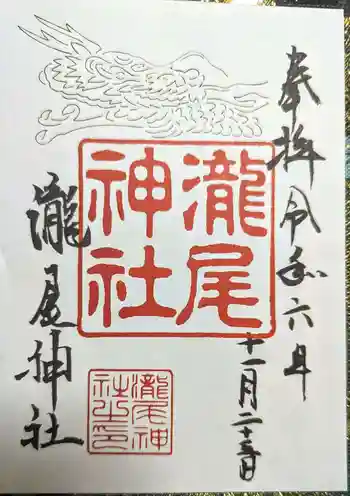 奉拝
令和六年
十一月二十三日
瀧尾
神社
瀧尾神社
瀧尾神
社之印